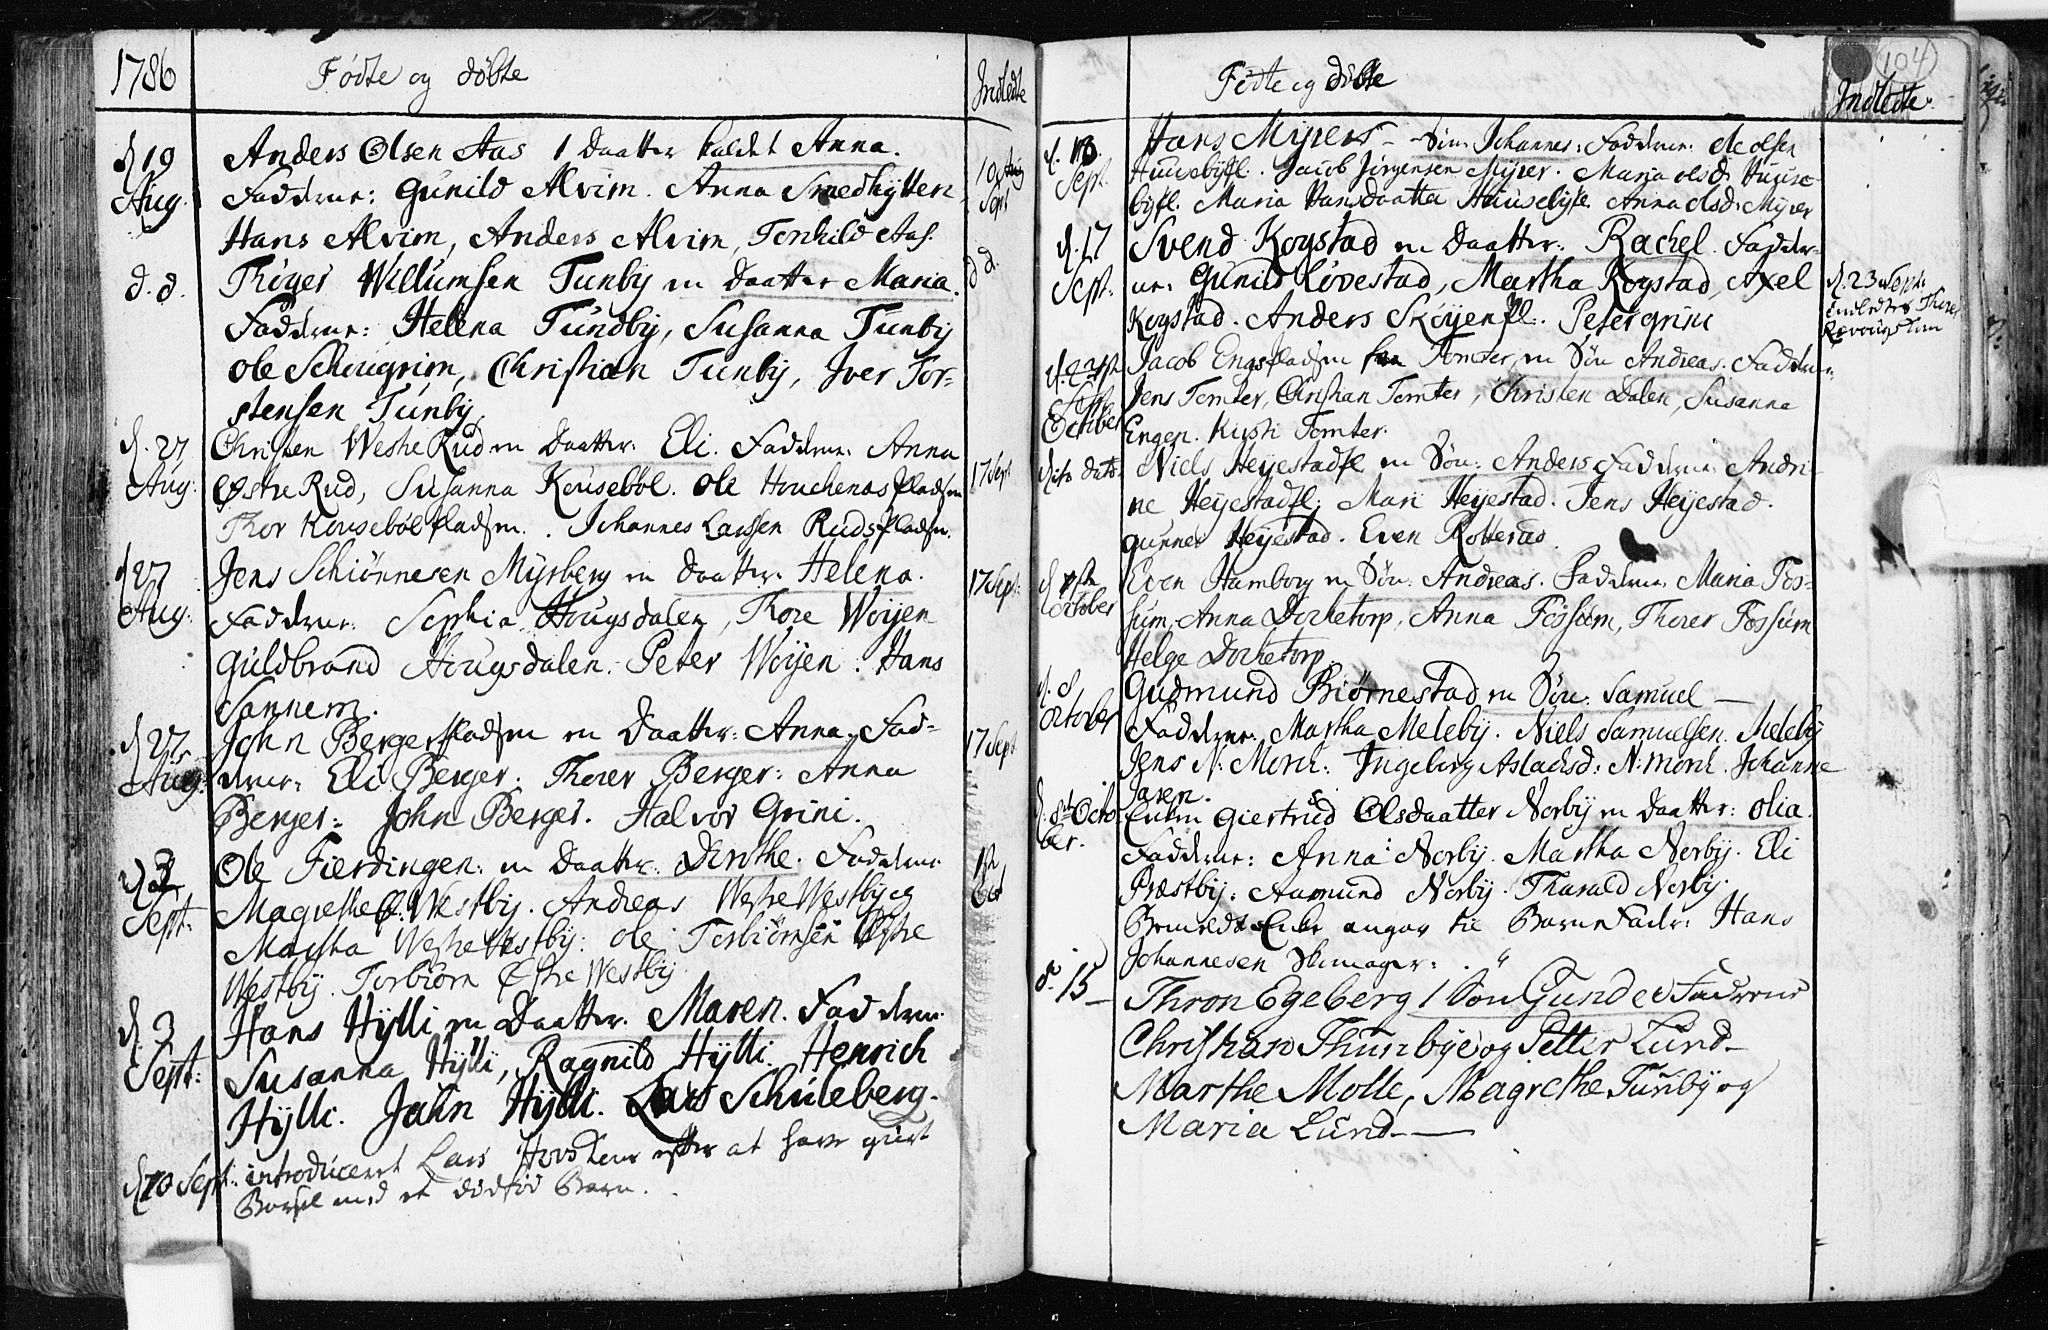 1786
Fødte og døbte
Indledte
d 19 Aug. Anders Olsen Aas 1 Daatter kaldet Anna.
Fadderne: Gunild Alvim. Anna Smedhytten
Hans Alvim, Anders Alvim, Torhild Aas.
Sept
d. d. Thiøger Willumsen Tunby en Daatter Maria.
d d.
Fadderne: Helena Tundby, Susanna Tunby
Ole Schougrim, Christian Tunby, Iver Tor-
stensen Tunby
d. 27 Aug: Christen Westre Rud en Daatter: Eli. Fadderne: Anna
17 Sept
Østre Rud, Susanna Kousebøl. Ole Houchenas pladsen
Thor Kousebøl pladsen. Johannes Larssen Rudspladsen.
d 27 Aug: Jens Schiønnesen Myrberg en Daatter. Helena.
17 Sept:
Fadderne: Sophia Hougsdalen, Thore Woyen
Guldbrand Hougsdalen. Peter Woyen. Hans
Sannem.
d 27 Aug: John Berger pladsen en Daatter: Anna. Fad-
17 Sept
derne: Eli Berger. Thorer Berger: Anna
Berger: John Berger. Halvor Grini.
d. 3 Sept: Ole Fierdingen: en Daatter: Dorthe. Fadderne
1ste Oct
Magrethe Ø: Westby. Andreas Westre Westby og
Martha Westre Westby: Ole Torbiørnsen Østre
Westby. Torbiørn Østre Westby.
d. 3 Sept: Hans Hylli en Daatter. Maren. Fadderne
Susanna Hylli, Ragnild Hylli. Henrich
Hylli. John Hylli. Lars Schuleberg.
d 10 Sept: introduceret Lars Hovs Kone efter at have giort
Barsel med et dødfød Barn.
104
Fødte og døbte
Indledte
d. 10. Sept. Hans Myrers Søn: Johannes: Fadderne: Ole Olsen
Huusebyfl. Jacob Jørgensen Myrer. Maria Olsd. Huuse-
byfl. Maria Hansdaatter Huusebyfl. Anna Olsd: Myrer
d. 17 Sept: Svend Kogstad en Daatter: Rachel. Fadder-
ne: Gunild Løvestad, Martha Kogstad, Axel
d. 23 Sept:
Kogstad. Anders Skøyenfl. Peter Grini
indledtes Thorer
Jacob Engspladsen fra Tomter, en Søn Andreas. Fadderne:
October Jens Tomter, Christian Tomter, Christen Dalen, Susanna
Engen. Kisti Tomter.
dito dato. Niels Heyestadfl en Søn: Anders Fadderne: Andri-
ne Heyestadfl; Mari Heyestad. Jens Heyestad.
Gunner Heyestad. Even Rotterud.
d 1ste October Even Hamborg en Søn: Andreas. Fadderne Maria Fos-
sum, Anna Dochetorp, Anna Fossum, Thorer Fossum
Helge Dochetorp.
d. 8 October Gudmund Biørnestad en Søn: Samuel
Fadderne: Martha Meleby. Niels Samuelsen. Meleby
Jens N: Mørch: Ingeborg Aslachsd: N: Mørch. Johanne
Jaren.
d. 8de Octo- ber. Enken Giertrud Olsdaatter Norby en Daatter: Olia.
Fadderne: Anna Norby. Martha Norby. Eli
Præstby: Aamund Norby. Tharald Norby.
Bemeldte Enke angav til Barnefader: Hans
Johannesen Skomager:
d. 15 Thron Egeberg 1 Søn Gunder Fadrene
Christian Thunbye og Petter Lund
Marthe Molle, Magrethe Tunby og
Maria Lund